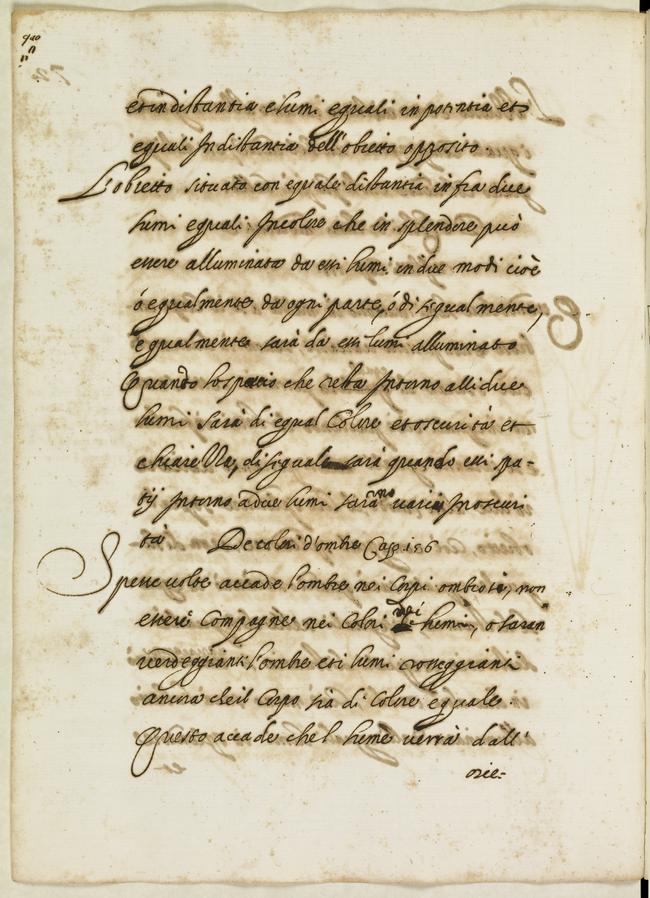 et in distantia e lumi eguali in potentia et
eguali In distantia dell'obietto opposito.
L'obietto situato con equale distantia in fra due
lumi eguali Incolore che in splendore può
essere alluminato da essi lumi in due modi cioè
ò egualmente da ogni parte, ò disegualmente,
egualmente sarà da essi lumi alluminato
Quando lo spatio che resta Intorno alli due
lumi sarà di egual Colore et oscurità et
chiarezza, diseguale sarà quando essi spa-
tij Intorno a due lumi saranno varij In oscuri
tà De colori d'ombre Cap: 156
Spesse volte accade l'ombre nei Corpi ombrosi, non
essere Compagne nei Colori nei lumi, o saran
verdeggianti l'ombre et i lumi rosseggianti
ancora che il Corpo sia di Colore eguale.
Questo accade che l lume verrà dall'
orie-